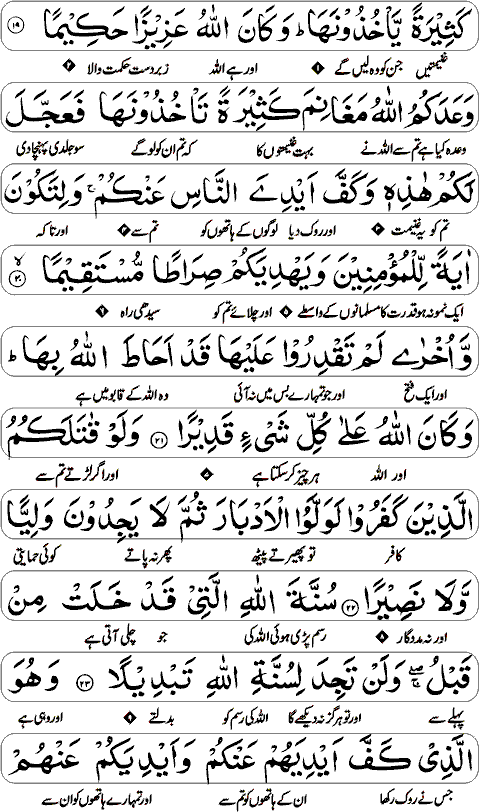 كَثِيْرَةً يَّاْخُذُوْنَهَا ؕ وَكَانَ اللهُ عَزِيْزًا حَكِيْمًا ﴿۱۹﴾
غنیمتیں جن کو وہ لیں گے ۱ اور ہے اللہ زبردست حکمت والا ۲
وَعَدَكُمُ اللهُ مَغَانِمَ كَثِيْرَةً تَاْخُذُوْنَهَا فَعَجَّلَ
وعدہ کیا ہے تم سے اللہ نے بہت غنیمتوں کا کہ تم ان کو لو گے سو جلدی پہنچا دی
لَكُمْ هٰذِهٖ وَكَفَّ اَيْدِىَ النَّاسِ عَنْكُمْ ۚ وَلِتَكُوْنَ
تم کو یہ غنیمت ۲ اور روک دیا لوگوں کے ہاتھوں کو تم سے ۴ اور تاکہ
اٰيَةً لِّلْمُؤْمِنِيْنَ وَيَهْدِيَكُمْ صِرَاطًا مُّسْتَقِيْمًا ۙ﴿۲۰﴾
ایک نمونہ ہو قدرت کا مسلمانوں کے واسطے ۵ اور چلائے تم کو سیدھی راہ ۶
وَّاُخْرٰى لَمْ تَقْدِرُوْا عَلَيْهَا قَدْ اَحَاطَ اللهُ بِهَا ؕ
اور ایک فتح اور جو تمہارے بس میں نہ آئی وہ اللہ کے قابو میں ہے
وَكَانَ اللهُ عَلٰى كُلِّ شَىْءٍ قَدِيْرًا ﴿۲۱﴾ وَلَوْ قٰتَلَكُمُ
اور اللہ ہر چیز کر سکتا ہے ۷ اور اگر لڑتے تم سے
الَّذِيْنَ كَفَرُوْا لَوَلَّوُا الْاَدْبَارَ ثُمَّ لَا يَجِدُوْنَ وَلِيًّا
کافر تو پھیرتے پیٹھ پھر نہ پاتے کوئی حمایتی
وَّلَا نَصِيْرًا ﴿۲۲﴾ سُنَّةَ اللهِ الَّتِىْ قَدْ خَلَتْ مِنْ
اور نہ مددگار ۸ رسم پڑی ہوئی اللہ کی جو چلی آتی ہے
قَبْلُ ۖۚ وَلَنْ تَجِدَ لِسُنَّةِ اللهِ تَبْدِيْلًا ﴿۲۳﴾ وَهُوَ
پہلے سے اور تو ہرگز نہ دیکھے گا اللہ کی رسم کو بدلتے ۹ اور وہی ہے
الَّذِىْ كَفَّ اَيْدِيَهُمْ عَنْكُمْ وَاَيْدِيَكُمْ عَنْهُمْ
جس نے روک رکھا ان کے ہاتھوں کو تم سے اور تمہارے ہاتھوں کو ان سے